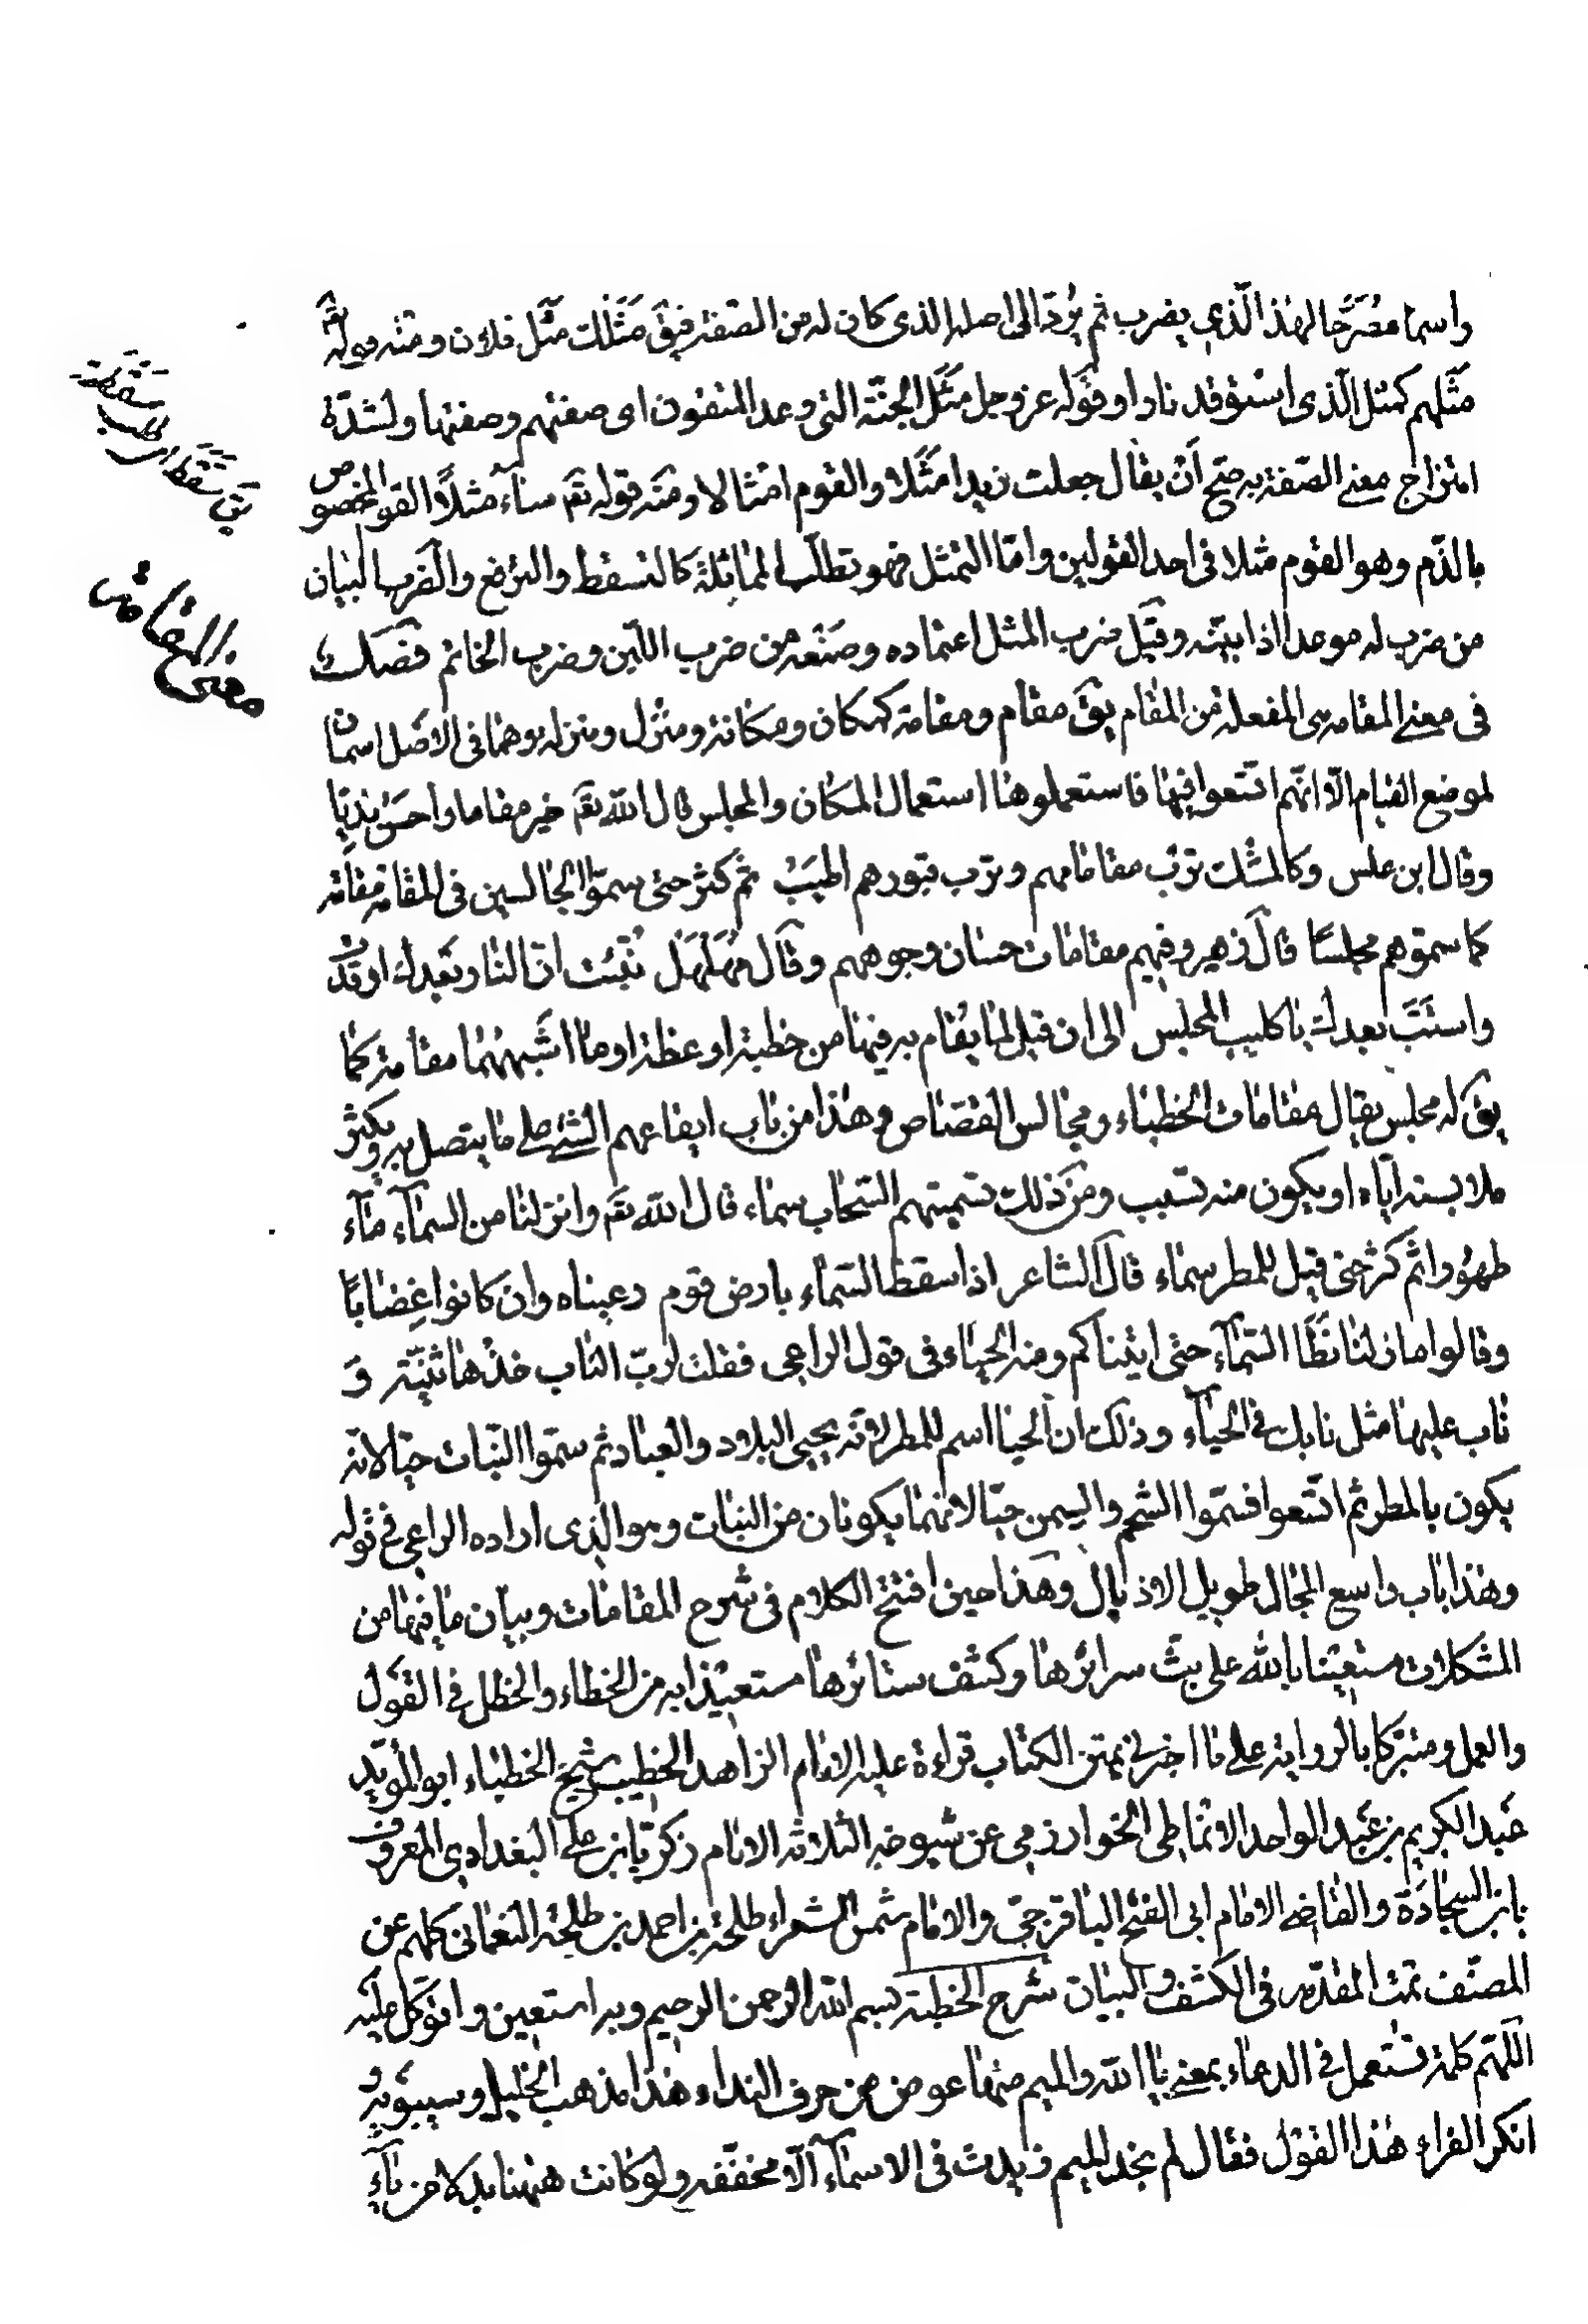 واسما مصرحا لهذا الذي يضرب ثم يرد الى اصله الذي كان له من الصفة فيق مثلك مثل فلان ومنه قوله تع
مثلهم كمثل الذى استوقد نارا وقوله عز وجل مثل الجنة التى وعد المتقون اى صفتهم وصفتها ولشدة
امتزاج معنى الصفة به صح أن يقال جعلت زيدا مثلا والقوم امثالا ومنه قوله تع ساء مثلا القوم المخصوص
بالذم وهو القوم مثلا فى احد القولين واما التمثل فهو تطلب المماثلة كالتسقط والضرب البيان
من ضرب له موعدا اذا بينه وقيل ضرب المثل اعتماده وصنعه من ضرب اللبن وضرب الخاتم فصل
فى معنى المقامه هى المفعلة من المقام يق مقام ومقامة كمكان ومكانة ومنزل ومنزله وهما فى الاصل اسمان
لموضع القيام الا انهم اتسعوا فيها فاستعملوها استعمال المكان والمجلس قال الله تع خير مقاما واحسن نديا
وقال ابن علس وكالمسك ترب مقاماتهم وترب قبورهم اطيب ثم كثر حتى سموا الجالسين فى المقامة مقامة
كما سموهم مجلسا قال زهير وفيهم مقامات حسان وجوههم وقال مهلهل نبئت ان النار بعدك اوقدت
واستب بعدك يا كليب المجلس الى ان قيل لما يقام به فيها من خطبة او عظة او ما اشبههما مقامة كما
يق له مجلس يقال مقامات الخطباء ومجالس القصاص وهذا من باب ايقاعهم الشئ على ما يتصل به ويكثر
ملابسته اياه او يكون منه تسبب ومن ذلك تسميتهم السحاب سماء قال الله تع وانزلنا من السماء ماء
طهورا ثم كثر حتى قيل للمطر سماء قال الشاعر اذا سقط السماء بارض قوم رعيناه وان كانوا غضابا
وقالوا ما زلنا نطأ السماء حتى اتيناكم ومنه الحياء فى قول الراعى فقلت لرب الناب خذها ثنية و
ناب عليها مثل نابك فى الحياء وذلك ان الحيا اسم للمطر لانه يحيى البلاد والعباد ثم سموا النبات حيا لانه
يكون بالمطر ثم اتسعوا فسموا الشحم والسمن حيا لانهما يكونان من النبات وهو الذى اراده الراعى فى قوله
وهذا باب واسع المجال طويل الاذيال وهذا حين افتتح الكلام فى شرح المقامات وبيان ما فيها من
المشكلات مستعينا بالله على بث سرائرها وكشف ستائرها مستعيذا به من الخطاء والخطل فى القول
والعمل ومتبركا بالرواية على ما اخبرنى بمتن الكتاب قراءة عليه الامام الزاهد الخطيب شيخ الخطباء ابو المؤيد
عبد الكريم بن عبد الواحد الانماطى الخوارزمى عن شيوخه الثلاثه الامام زكريا بن على البغدادى المعروف
بابن السجادة والقاضى الامام ابى الفتح الباقرجى والامام شمس الشعراء طلحة بن احمد بن طلحة النعمانى كلهم عن
المصنف تمت المقدمه فى الكشف والبيان شرح الخطبة بسم الله الرحمن الرحيم وبه استعين واتوكل عليه
اللهم كلمة تستعمل فى الدعاء بمعنى يا الله والميم فيها عوض من حرف النداء هذا مذهب الخليل وسيبويه و
انكر الفراء هذا القول فقال لم نجد الميم زيدت فى الاسماء الا مخففه ولو كانت ههنا بدلا من ياء
معنى المقامة